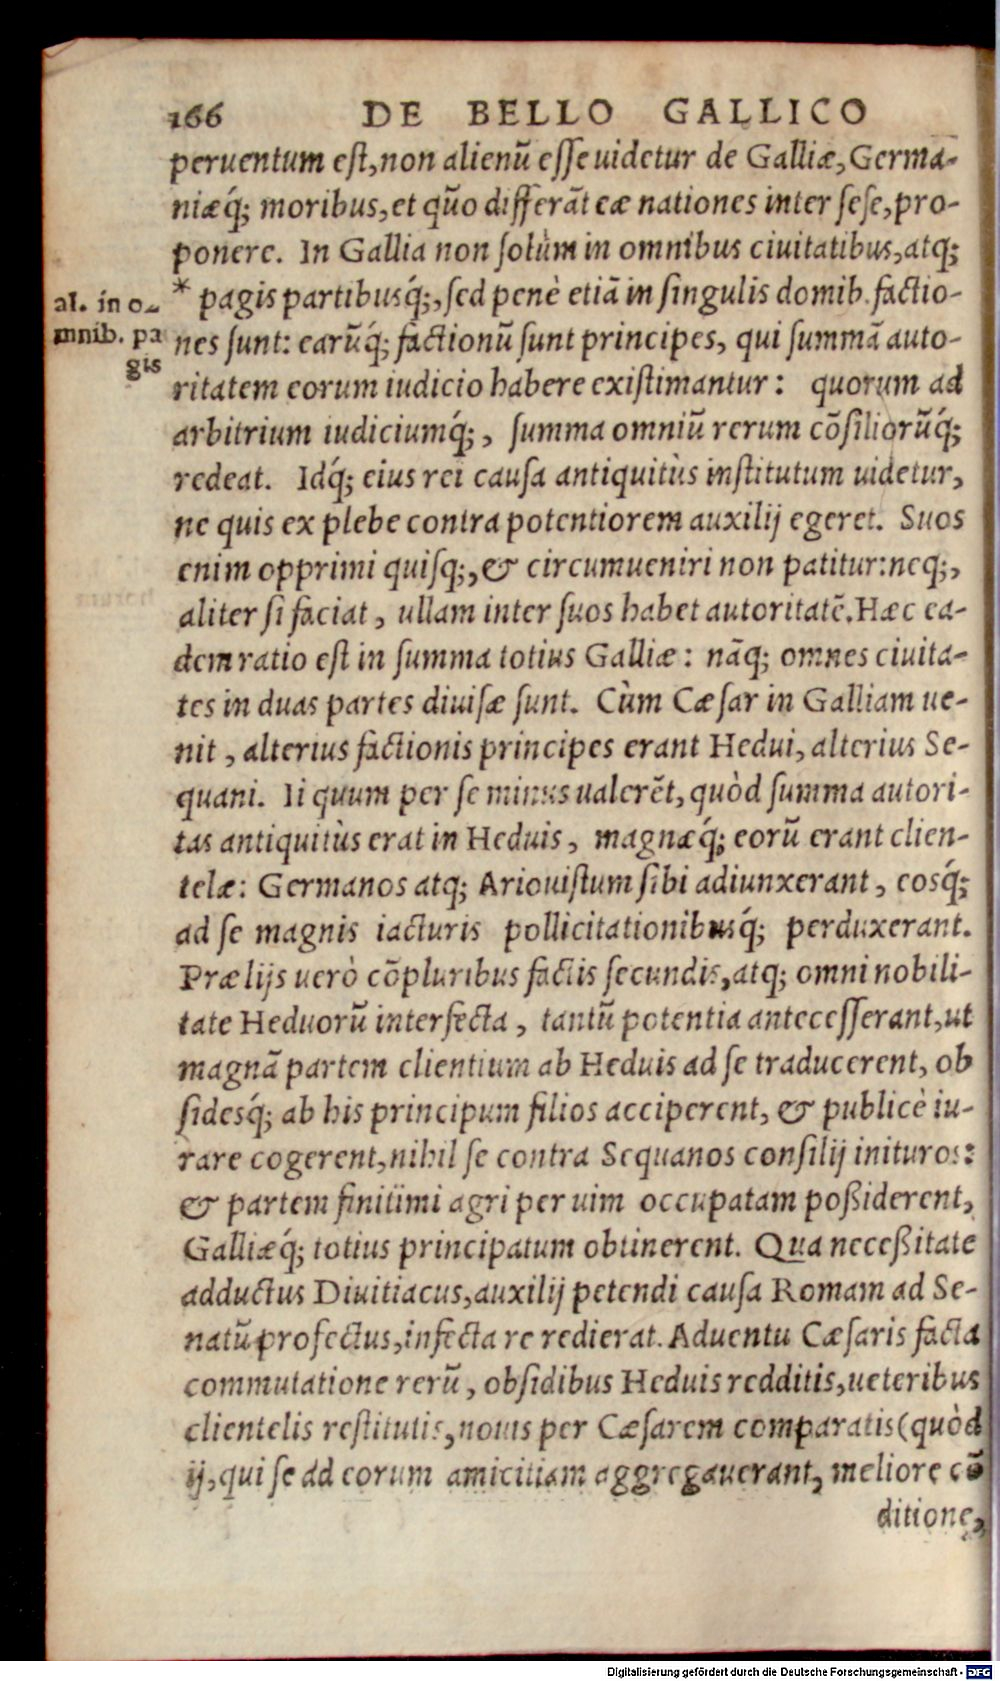 166 DE BELLO GALLICO
peruentum eſt,non alienũ eſſe uidetur de Galliæ,Germa-
niæq́; moribus,et quõ differãt eæ nationes inter ſeſe,pro-
ponere. In Gallia non ſolùm in omnibus ciuitatibus,atq;
* pagis partibusq́;,ſed penè etiã in ſingulis domib.factio-
al. in o-
mnib. pa
gis
nes ſunt: earũq́; factionũ ſunt principes, qui ſummã auto-
ritatem eorum iudicio habere exiſtimantur: quorum ad
arbitrium iudiciumq́;, ſumma omniũ rerum cõſiliorũq́;
redeat. Idq́; eius rei cauſa antiquitùs inſtitutum uidetur,
ne quis ex plebe contra potentiorem auxilij egeret. Suos
enim opprimi quiſq;,& circumueniri non patitur:neq;,
aliter ſi faciat, ullam inter ſuos habet autoritatẽ.Hæc ea-
dem ratio eſt in ſumma totius Galliæ: nãq; omnes ciuita-
tes in duas partes diuiſæ ſunt. Cùm Cæſar in Galliam ue-
nit, alterius factionis principes erant Hedui, alterius Se-
quani. Ii quum per ſe minus ualerẽt,quòd ſumma autori-
tas antiquitùs erat in Heduis, magnæq́; eorũ erant clien-
telæ: Germanos atq; Ariouiſtum ſibi adiunxerant, eosq́;
ad ſe magnis iacturis pollicitationibusq́; perduxerant.
Prælijs uerò cõpluribus factis ſecundis,atq; omni nobili-
tate Heduorũ interfecta, tantũ potentia anteceſſerant,ut
magnã partem clientium ab Heduis ad ſe traducerent, ob
ſidesq́; ab his principum filios acciperent, & publicè iu-
rare cogerent,nihil ſe contra Sequanos conſilij inituros:
& partem finitimi agri per uim occupatam poßiderent,
Galliæq́; totius principatum obtinerent. Qua neceßitate
adductus Diuitiacus,auxilij petendi cauſa Romam ad Se-
natũ profectus,infecta re redierat. Aduentu Cæſaris facta
commutatione rerũ, obſidibus Heduis redditis,ueteribus
clientelis reſtitutis,nouis per Cæſarem comparatis(quòd
ij,qui ſe ad eorum amicitiam aggregauerant, meliore cõ
ditione,
Digitalisierung gefördert durch die Deutsche Forschungsgemeinschaft - DFG